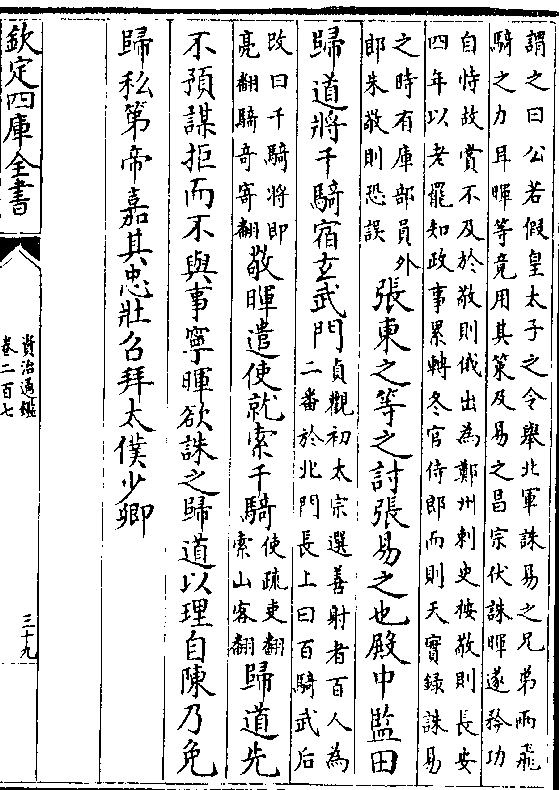 謂之曰公若假皇太子之令舉北軍誅易之兄弟兩飛
騎之力耳暉等竟用其策及易之昌宗伏誅暉遂矜功
自恃故賞不及於敬則俄出為鄭州刺史按敬則長安
四年以老罷知政事累轉冬官侍郎而則天實録誅易
之時有庫部員外
郎朱敬則恐誤
張柬之等之討張易之也殿中監田
歸道將千騎宿玄武門
貞觀初太宗選善射者百人為
二番於北門長上曰百騎武后
改曰千騎將即
亮翻騎奇寄翻
敬暉遣使就索千騎
使疏吏翻
索山客翻
歸道先
不預謀拒而不與事寧暉欲誅之歸道以理自陳乃免
歸私第帝嘉其忠壯召拜太僕少卿
欽定四庫全書
資治通鑑
卷二百七
三十九